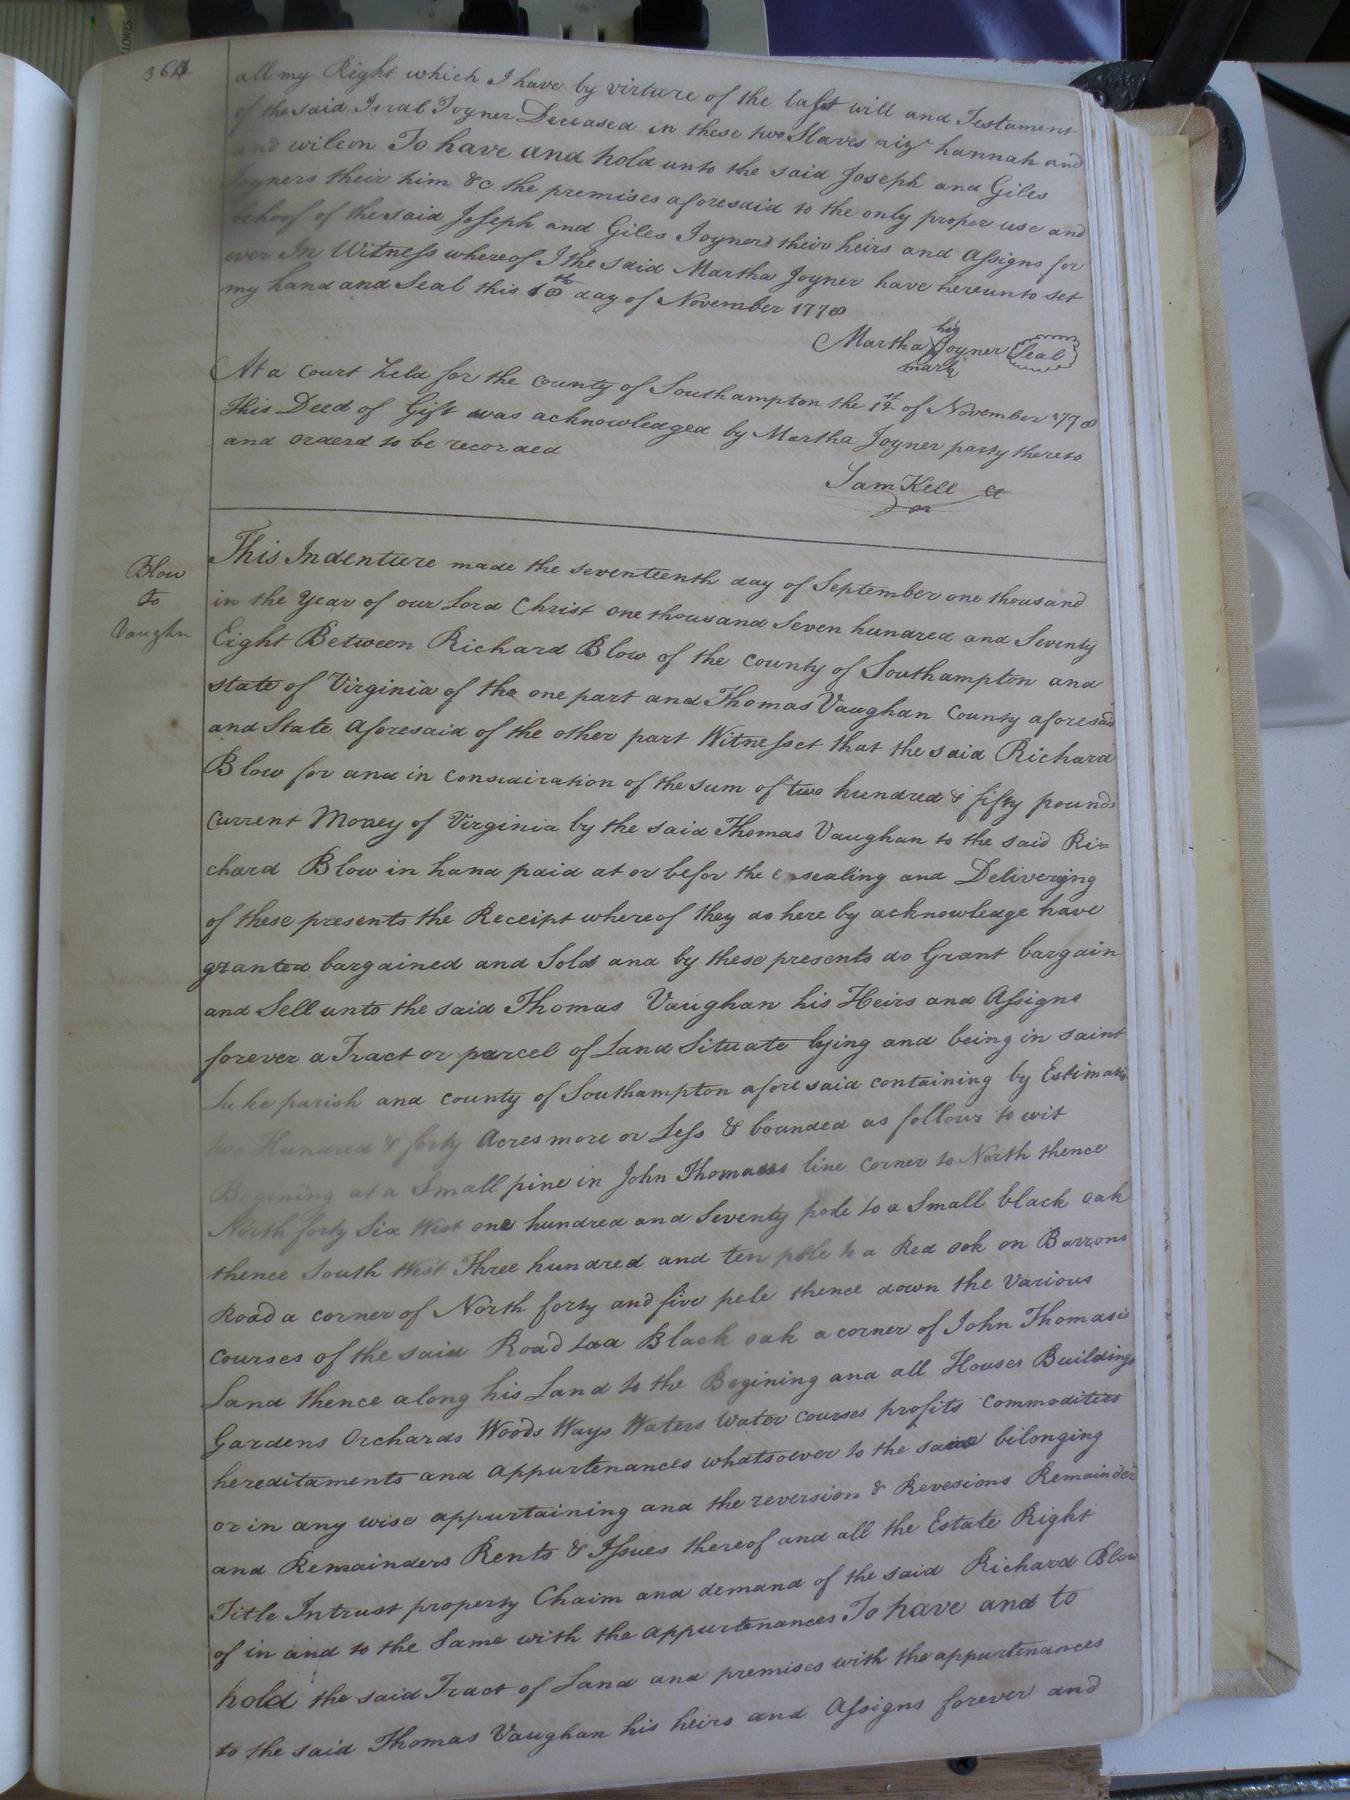 364
all my Right which I have by virture of the last will and Testament
of the said Isral Joyner Deceased in these two Slaves viz hannah and
and wilson To have and hold unto the said Joseph and Giles
Joyners their him &c the premises aforesaid to the only proper use and
behoof of the said Joseph and Giles Joyners their heirs and Assigns for
ever In Witness whereof I the said Martha Joyner have hereunto set
my hand and Seal this day of November 1778
his
Martha Joyner Seal
mark
At a Court held for the County of Southampton the 12th of November 1778
This Deed of Gift was acknowledged by Martha Joyner party thereto
and orderd to be recorded
Sam Kell
Blow
To
Vaughn
This Indenture made the seventeenth day of September one thousand
in the Year of our Lord Christ one thousand Seven hundred and Seventy
Eight Between Richard Blow of the County of Southampton and
state of Virginia of the one part and Thomas Vaughan County aforesaid
and State Aforesaid of the other part Witnesset that the said Richard
Blow for and in Considiration of the sum of two hundred & fifty pounds
Current Money of Virginia by the said Thomas Vaughan to the said Ri=
chard Blow in hand paid at or befor the sealing and Delivering
of these presents the Receipt whereof they do here by acknowledge have
granted bargained and Sold and by these presents do Grant bargain
and Sell unto the said Thomas Vaughan his Heirs and Assigns
forever a Tract or parcel of Land Situate lying and being in saint
Luke parish and County of Southampton aforesaid containing by Estimatio
two Hundred & forty Acres more or Less & bounded as follows to wit
Begining at a Small pine in John Thomases line Corner to North thence
North forty Six West one hundred and Seventy pole to a Small black oak
thence South West Three hundred and ten pole to a Red oak on Barrons
Road a corner of North forty and five pele thence down the Various
Courses of the said Road to a Black oak a corner of John Thomasis
Land thence along his Land to the Begining and all Houses Buildings
Gardens Orchards Woods Ways Waters Water courses profits Commodities
hereditaments and appurtenances whatsoever to the same belonging
or in any wise appurtaining and the reversion & Revesions Remainder
and Remainders Rents & Issues thereof and all the Estate Right
Title Intrust property Chaim and demand of the said Richard Blow
of in and to the Same with the appurtenances To have and to
hold the said Tract of Land and premises with the appurtenances
to the said Thomas Vaughan his heirs and Assigns forever and